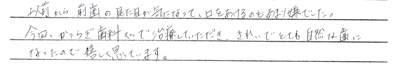 以前から前歯の見た目が気になって、口をあけるのもあまり嫌でした。
今回、かつらぎ歯科さんで治療していただき、きれいでとても自然な歯に
なったので嬉しく思っています。